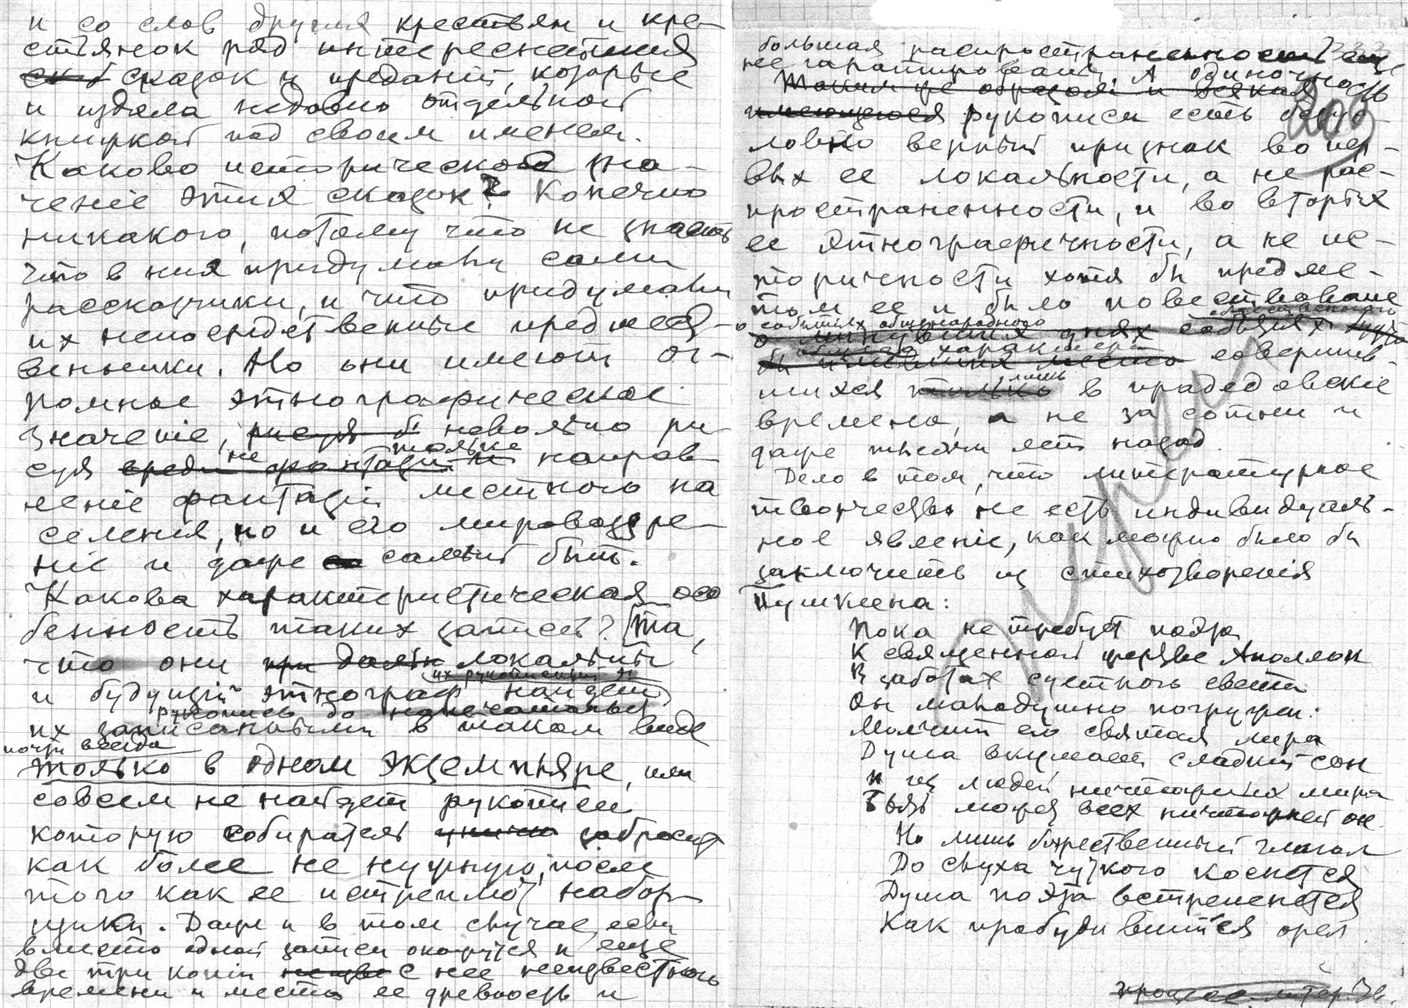 и со слов других крестьян и кре-
стьянок ряд интереснейших
сказок и преданий, которые
и издала недавно отдельной
книжкой под своим именем.
Каково историческое зна-
чение этих сказок? Конечно
никакого, потому что не знаешь
что в них придумали сами
рассказчики, и что придумали
их непосредственные предшест-
венники. Но они имеют ог-
ромное этнографическое
значение, невольно ри
суя не только направ
ление фантазии местного на
селения, но и его мировоззре-
ние и даже самый быт.
Какова характеристическая осо
бенность таких записей? Та,
что они локальны
и будущий этнограф найдет
их рукописи
рукопись до напечатанья
их записанными в таком виде
почти всегда
только в одном экземпляре, или
совсем не найдет рукописи
которую собиратель забросит
как более не нужную, после
того как ее истрепмют набор-
щики. Даже и в том случае, если
вместо одной записи окажутся и еще
две три копии с нее неизвестного
времени и места ее древность и
большая распространенность еще
не гарантированы. А одиночность
рукописи есть безус-
203
ловно верный признак во пер-
вых ее локальности, а не рас-
пространенности, и во вторых
ее этнографичности, а не ис-
торичности хотя бы предме-
том ее и было повествование
о событиях общенародного
общественного
характера
совершив-
шихся лишь в прадедовские
времена, а не за сотни и
даже тысячи лет назад.
Дело в том, что литературное
творчество не есть индивидуаль-
ное явление, как можно было бы
заключить из стихотворения
Пушкина:
Пока не требует поэта
К священной жертве Аполлон
В заботах суетного света
Он малодушно погружен:
Молчит его святая лира
Душа вкушает сладкий сон
И из людей ничтожных мира
Быть может всех ничтожней он.
Но лишь божественный глагол
До слуха чуткого коснется
Душа поэта встрепенется
Как пробудившийся орел